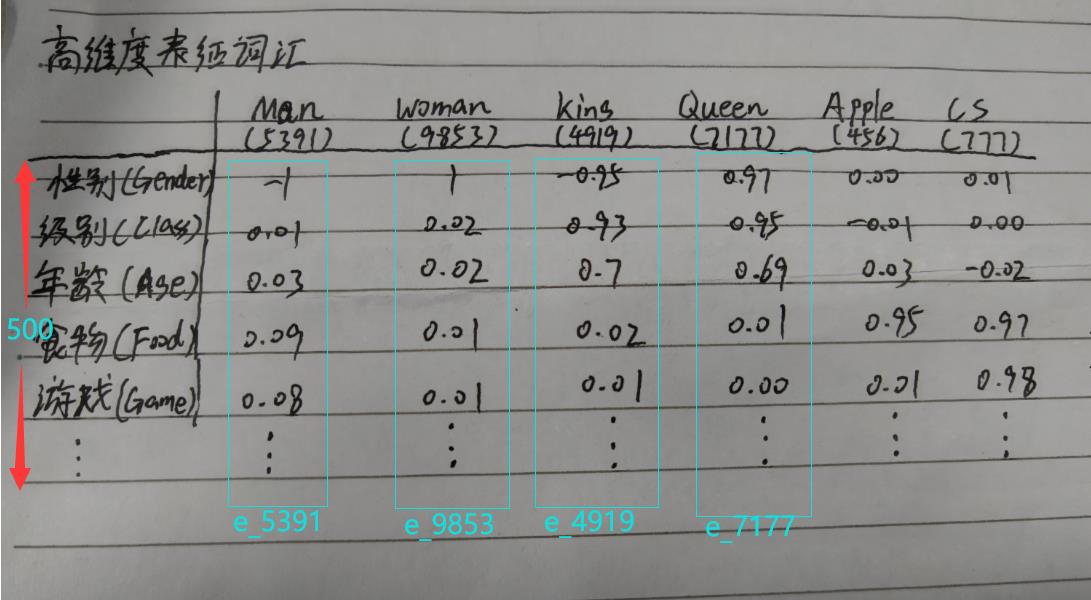 高维度表征词汇
Man Woman King Queen Apple CS
(5391) (9853) (4919) (7177) (456) (777)
性别(Gender) -1 1 -0.95 0.97 0.00 0.01
级别(Class) 0.01 0.02 0.93 0.95 -0.01 0.00
年龄(Age) 0.03 0.02 0.7 0.69 0.03 -0.02
500
食物(Food) 0.09 0.01 0.02 0.01 0.95 0.97
游戏(Game) 0.08 0.01 0.01 0.00 0.01 0.98
e_5391 e_9853 e_4919 e_7177